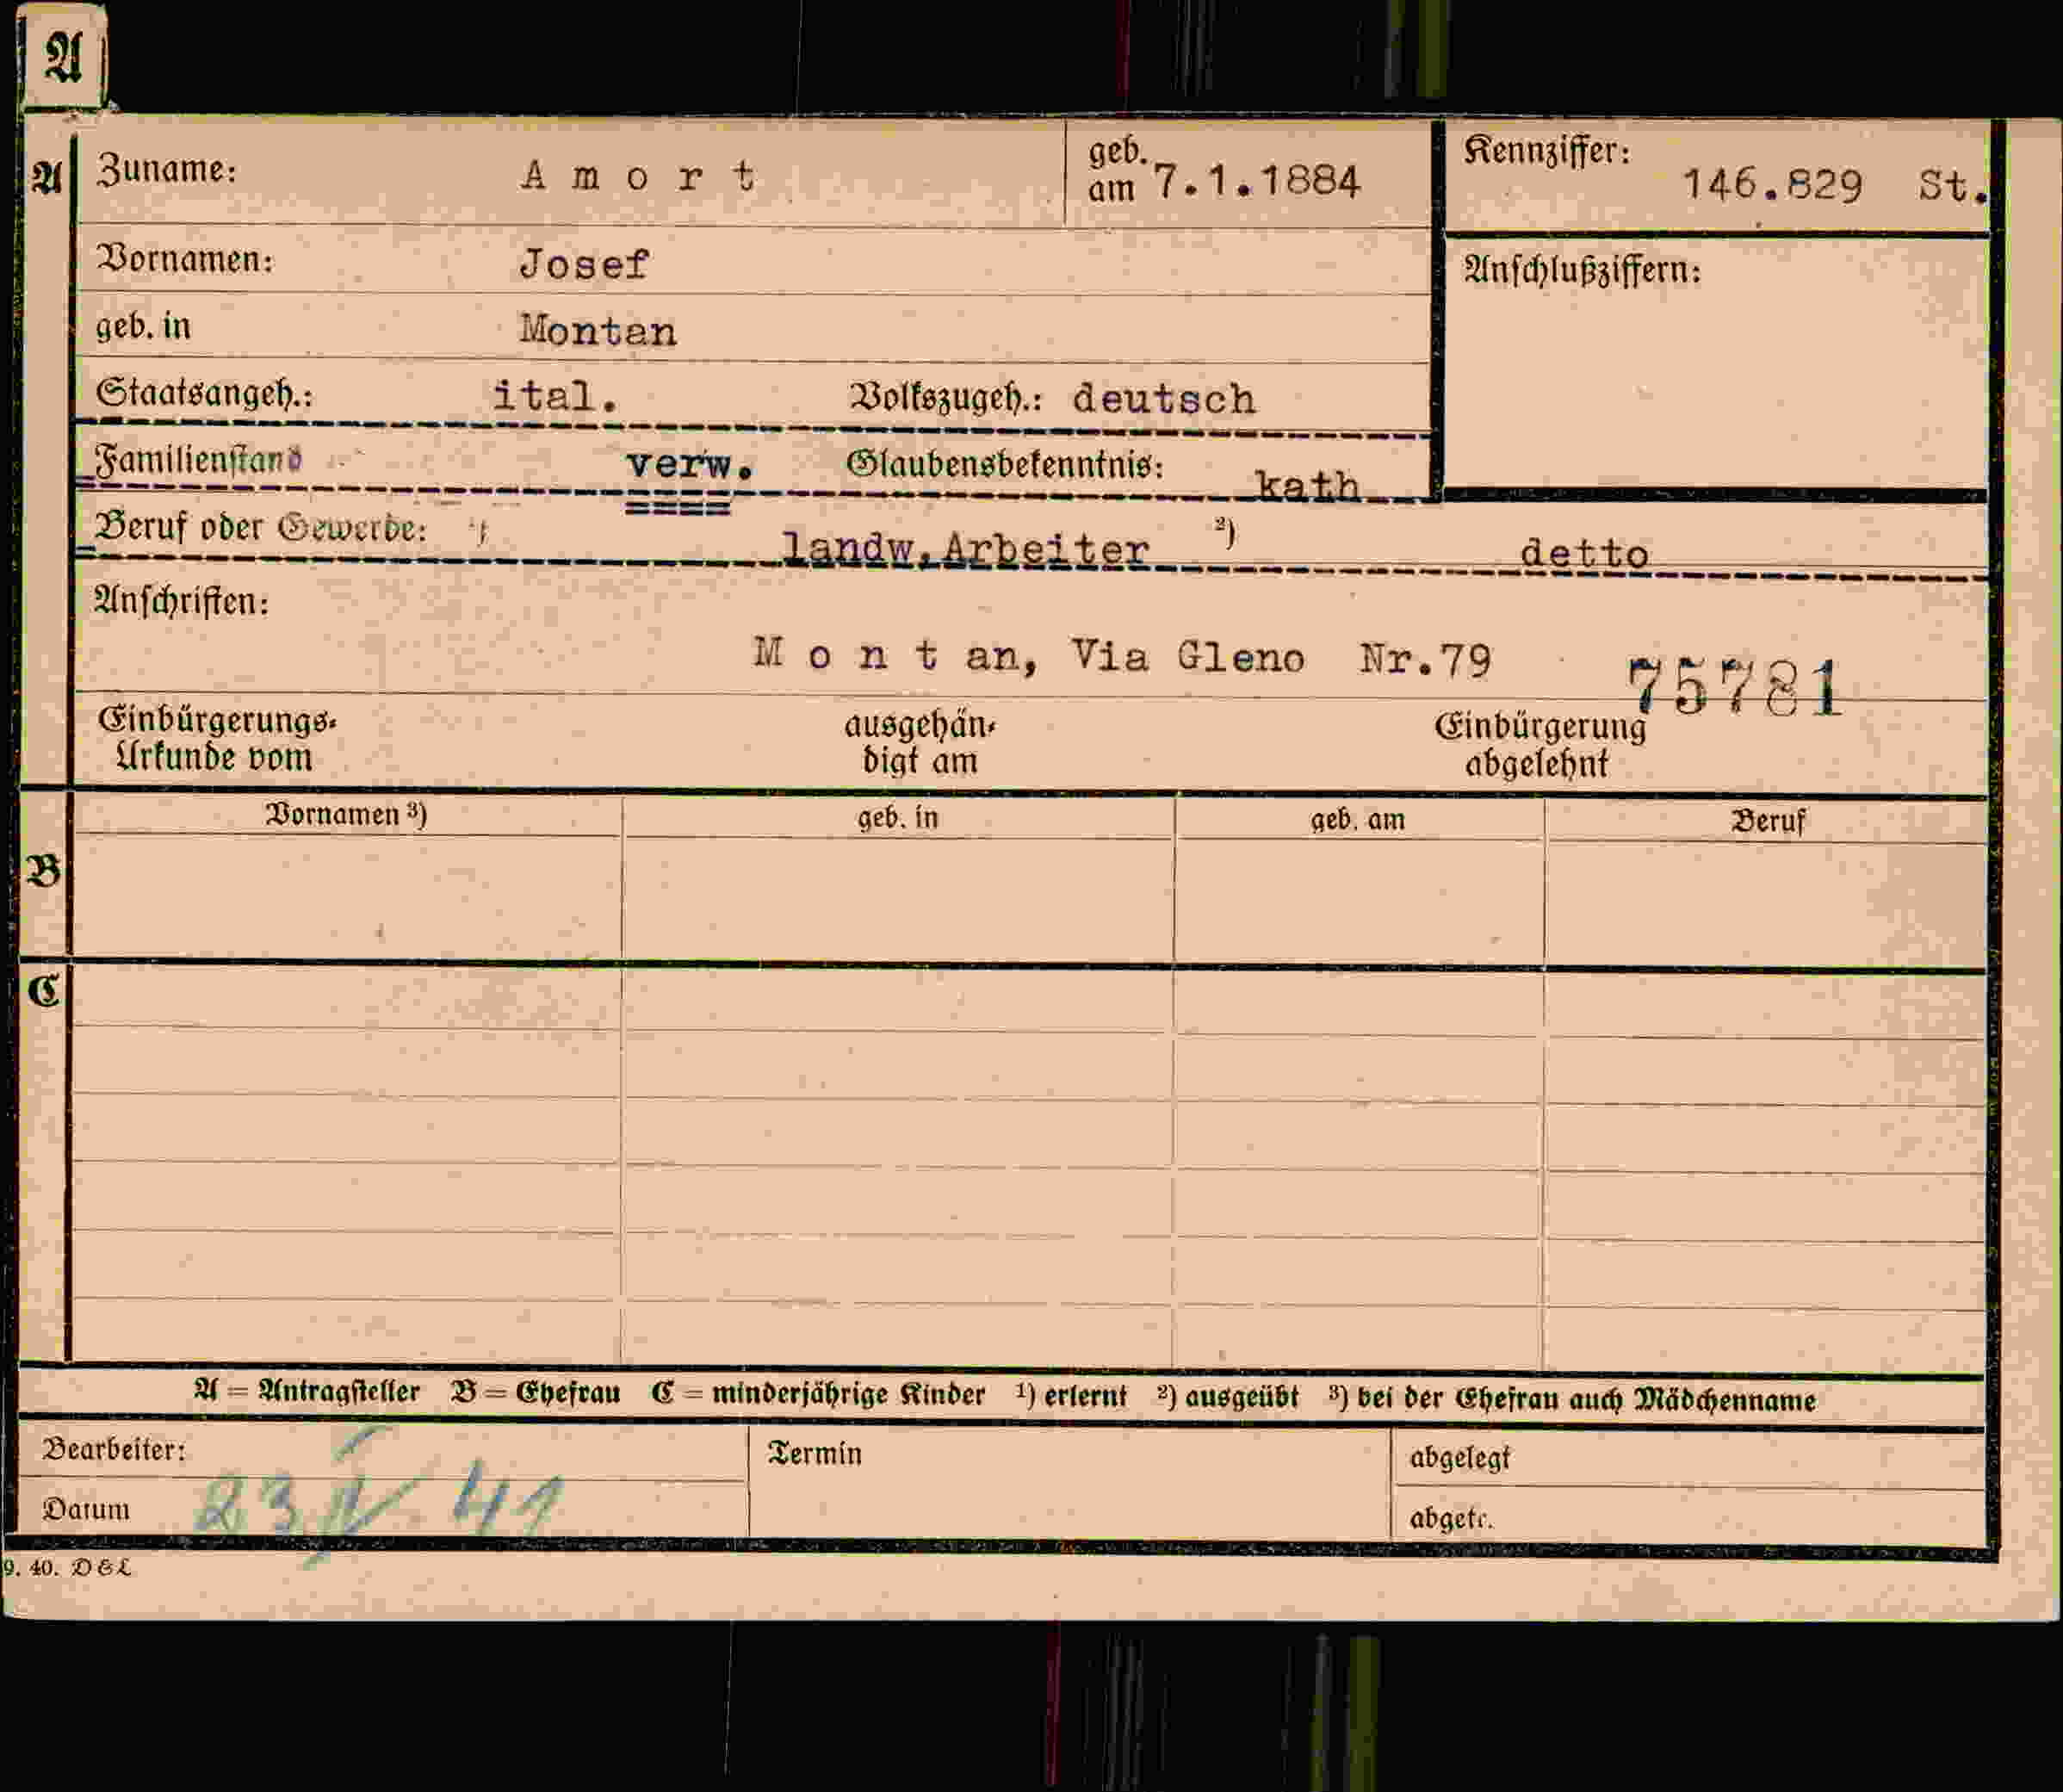 A
A Zuname: A m o r t geb. am 7.1.1884 Kennziffer: 146.829 St.
Vornamen: Josef Anschlußziffern:
geb. in Montan
Staatsangeh.: ital. Volkszugeh.: deutsch
Familienstand verw. Glaubensbekenntnis: kath
Beruf oder Gewerbe: landw.Arbeiter ²) detto
Anschriften:
M o n t an, Via Gleno Nr.79
75781
Einbürgerungs-
Urkunde vom
ausgehän-
digt am
Einbürgerung
abgelehnt
Vornamen ³) geb. in geb. am Beruf
B
C
A = Antragsteller B = Ehefrau C = minderjährige Kinder ¹) erlernt ²) ausgeübt ³) bei der Ehefrau auch Mädchenname
Bearbeiter: Termin abgelegt
Datum 23 41 abgetr.
9. 40. D&L